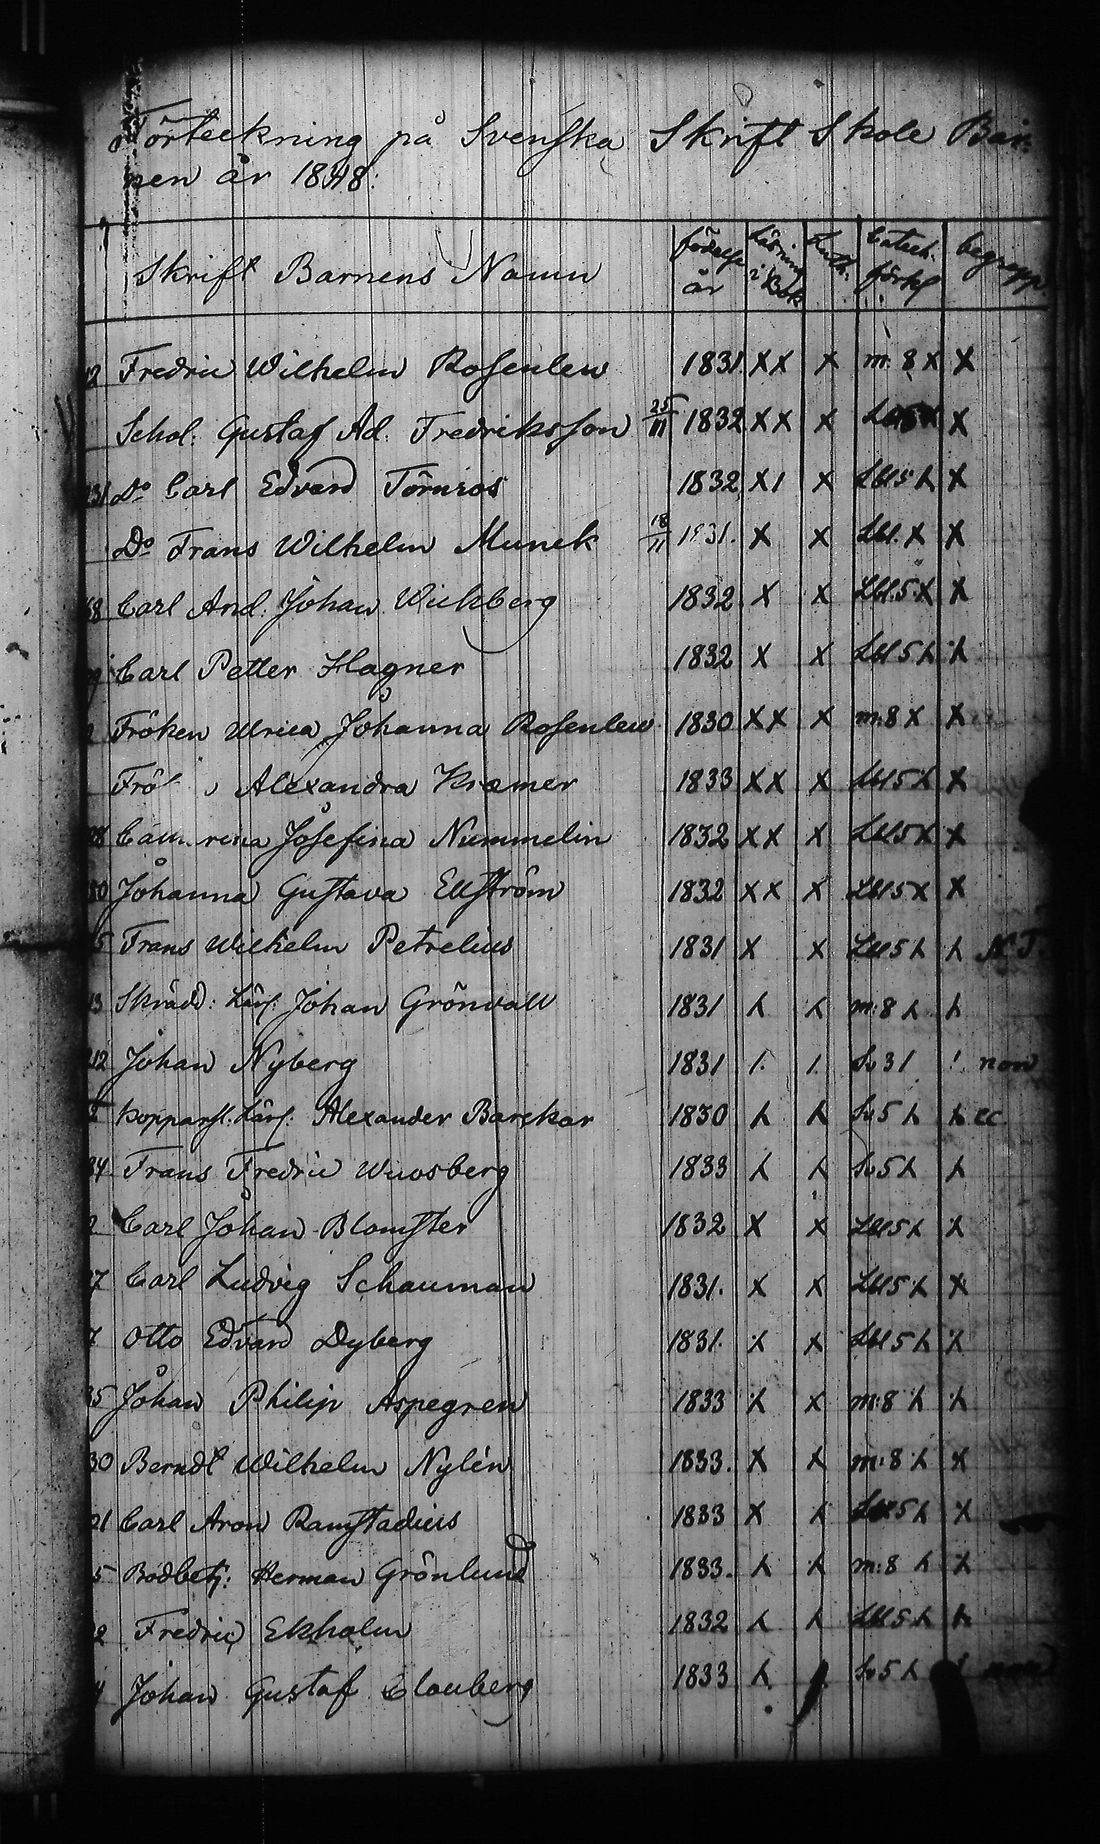 Förteckning på Svenska Skrift Skole Bar:
nen år 1848:
Skrift Barnens Namn födelse år Läsning i Bok Luth: Catech. förkl begrepp
Fredric Wilhelm Rosenlew 1831 XX X m: 8 X X
Schol: Gustaf Ad. Fredriksson 25/III 1832 XX X X
Do Carl Edvard Törnros 1832 X1 X X
Do Frans Wilhelm Munck 18/11 1831. X X X X
Carl And. Johan Wickberg 1832 X X X
Carl Petter Hagner 1832 X X
Fröken Ulrica Johanna Rosenlew 1830 XX X m: 8 X X
Frö Alexandra Kræmer 1833 XX X X
Cath rina Josefina Nummelin 1832 XX X X
Johanna Gustava Ellström 1832 XX X X
Frans Wilhelm Petrelius 1831 X X N.T.
Skrädd: Lärl: Johan Grönvall 1831 m: 8
212 Johan Nyberg 1831 1. 1. 31 non
Kopparsl: Lärl: Alexander Barckar 1830
Frans Fredric Wuosberg 1833
Carl Johan Blomster 1832 X X
Carl Ludvig Schauman 1831. X X X
Otto Edvard Dyberg 1831. X
Johan Philip Aspegren 1833 X m: 8
30 Berndt Wilhelm Nylén 1833. X m: 8 X
Carl Aron Ramstadius 1833 X X
Bodbetj: Herman Grönlund 1833. m: 8
Fredric Ekholm 1832
Johan Gustaf Clouberg 1833 non